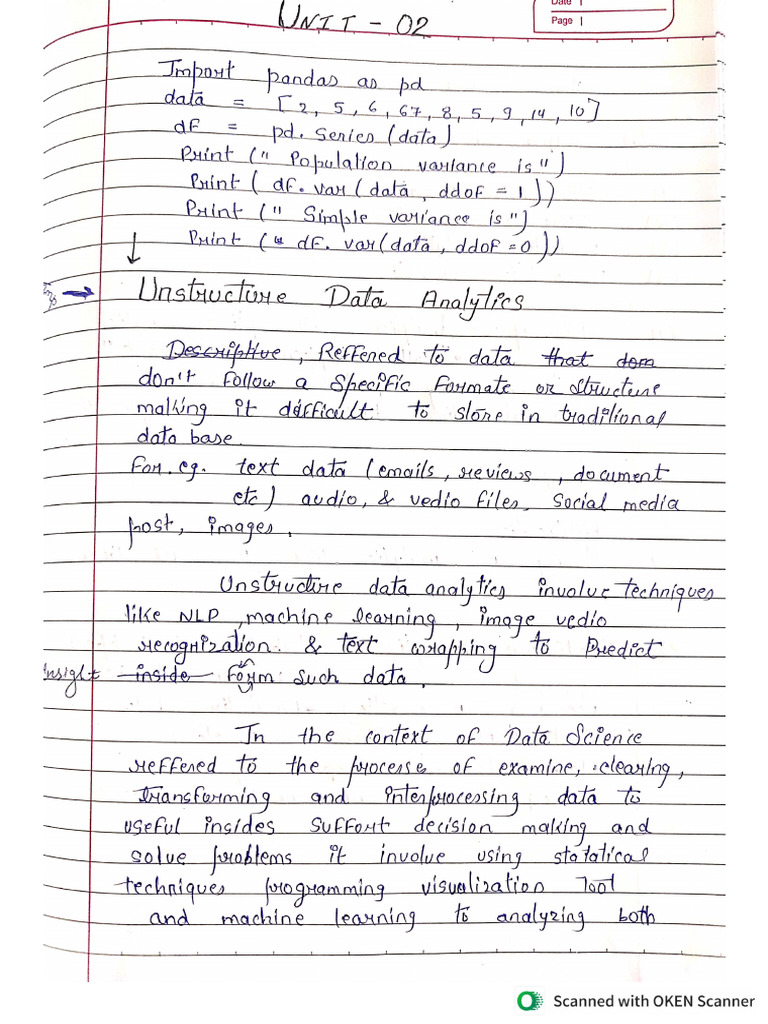 Date |
Page |
UNIT - 02
Import pandas as pd
data = [2, 5, 6, 67, 8, 5, 9, 14, 10]
df = pd. Series (data)
Print (" Population variance is ")
Print ( df. var ( data, ddof = 1 ))
Print (" Simple variance is ")
Print ( df. var(data, ddof = 0 ))
Imp → Unstructure Data Analytics
Descriptive, Reffened to data that dom
don't follow a Specific formate or structure
making it difficult to store in traditional
data base.
For. eg. text data (emails, reviews, document
etc) audio, & vedio files, Social media
post, images.
Unstructure data analytics involve techniques
like NLP, machine learning, image vedio
recognization & text wrapping to Predict
insight inside form such data.
In the context of Data Science
reffered to the processe of examine, clearing,
transforming and interprocessing data to
useful insides Suffort decision making and
solve problems it involve using statatical
techniques programming visualization Tool
and machine learning to analyzing both
Scanned with OKEN Scanner